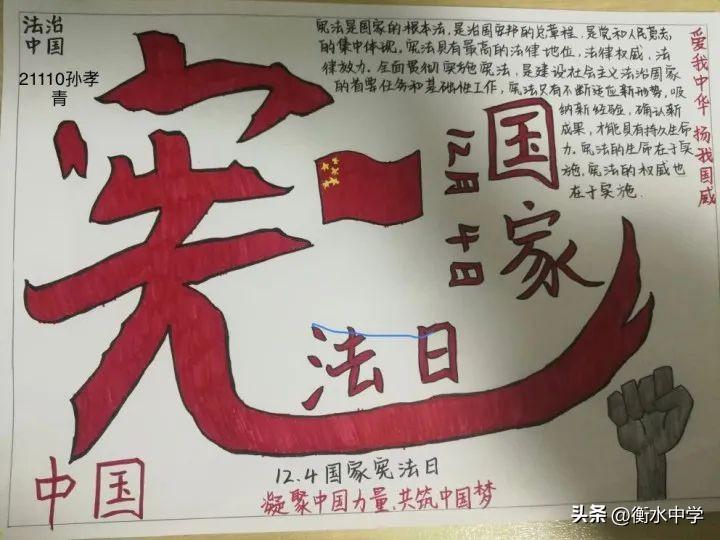 法治
中国
21110孙孝
青
宪法是国家的根本法,是治国安邦的总章程,是党和人民意志
的集中体现。宪法具有最高的法律地位,法律权威,法
律效力。全面贯彻实施宪法,是建设社会主义法治国家
的首要任务和基础性工作,宪法只有不断适应新形势,吸
纳新经验,确认新
成果,才能具有持久生命
力。宪法的生命在于实
施,宪法的权威也
在于实施.
爱我中华 扬我国威
宪
国家
12月4日
法日
中国
12.4国家宪法日
凝聚中国力量,共筑中国梦
头条 @衡水中学